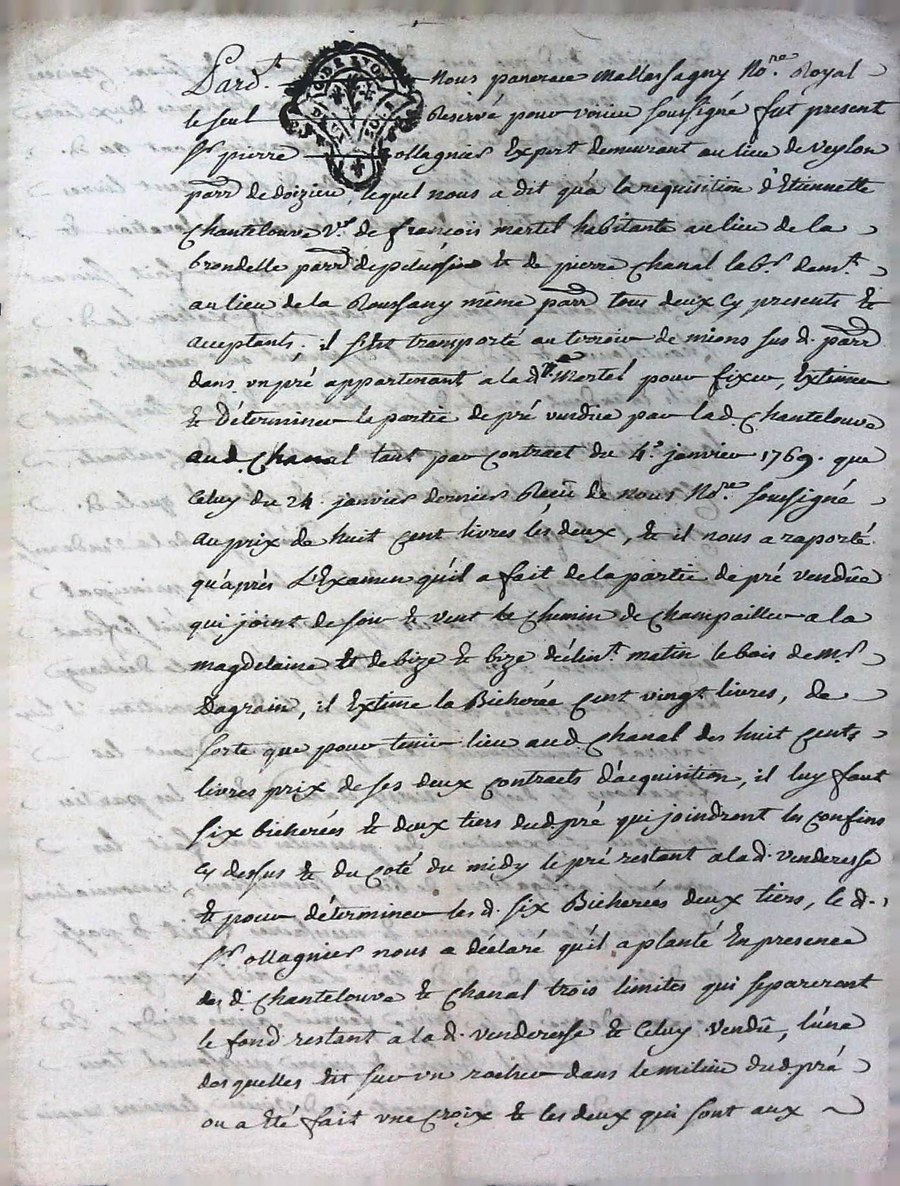 Pard.t nous pancrace Mallassagny No.re Royal
le seul Reservé pour voirie soussigné fut present
Sr pierre ollagnier Expert demeurant au lieu de veylon
parr de doizieu, lequel nous a dit qua la requisition d'Etiennette
Chantelouve V.e de françois mertel habitante au lieu de la
brondelle parr de pelussin & de pierre Chanal lab.r dem.t
au lieu de la Roussany même parr tous deux cy presents &
aceptants. il s'est transporté au terroir de mions sus d. parr
dans vn pré appartenant a la d.te Mertel pour fixer, Extimer
& Déterminer la partie de pré vendue par lad. Chantelouve
aud. Chanal tant par contract du 4.e janvier 1769. que
Celuy du 24. janvier dernier Reçû de nous No.re soussigné
au prix de huit Cent livres les deux, & il nous a raporté
qu'après L'Examen qu'il a fait de la partie de pré vendüe
qui joint de soir & vent le Chemin de Champailler a la
magdelaine & de bize & bize déclin.t matin le bois de m.r
Dagrain, il Extime la Bicherée Cent vingt livres, de
sorte que pour tenir lieu aud. Chanal des huit Cents
livres prix de ses deux Contracts d'acquisition, il luy faut
six bicherées & deux tiers dud. pré qui joindront les confins
Cy dessus & du Coté du midy le pré restant a la d. venderesse
& pour déterminer les d. six Bicherées deux tiers, le d.
Sr ollagnier nous a déclaré qu'il a planté En presence
des d. Chantelouve & Chanal trois limites qui separeront
le fond restant a la d. venderesse & Celuy vendû, l'une
des quelles Est sur vn rocher dans le milieu dud. pré
ou a Eté fait vne Croix & les deux qui sont aux